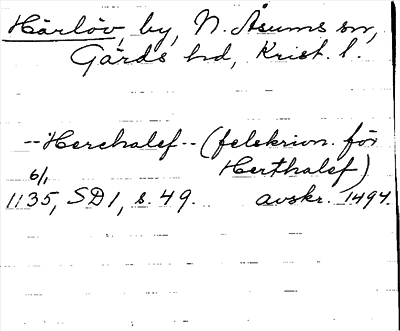 Härlöv, by, N. Åsums sn,
Gärds hd, Krist. l.
--Herehalef-- (felskrivn. för
Herthalef)
6/1
1135, SD1, s. 49. avskr. 1494.